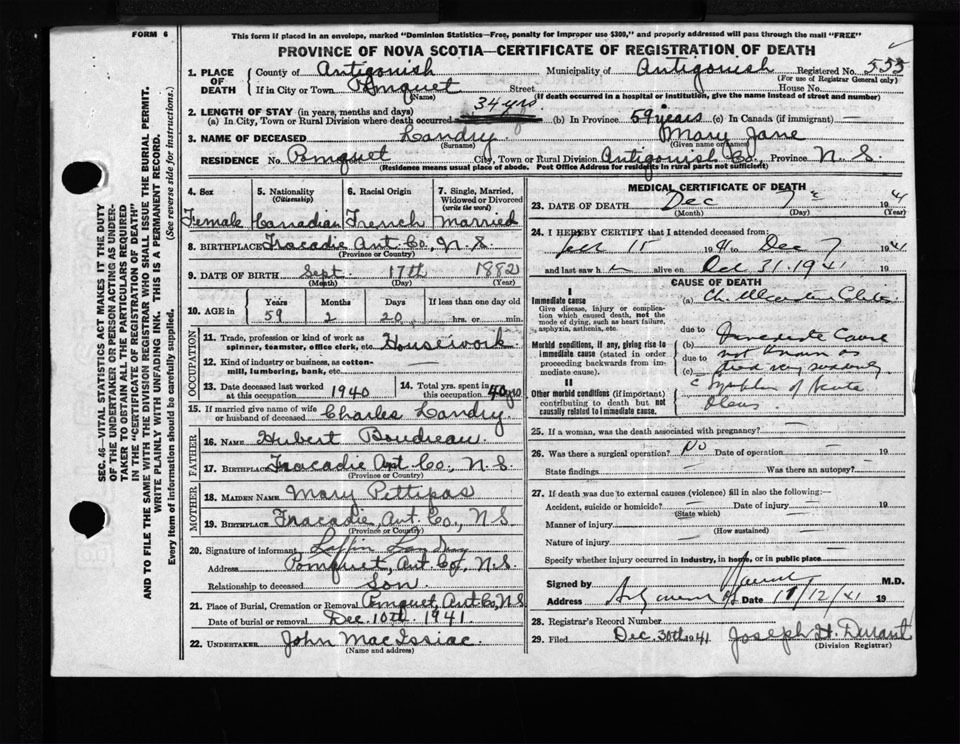 FORM 6
This form if placed in an envelope, marked "Dominion Statistics—Free, penalty for improper use $300," and properly addressed will pass through the mail "FREE"
PROVINCE OF NOVA SCOTIA—CERTIFICATE OF REGISTRATION OF DEATH
1. PLACE OF DEATH County of Antigonish Municipality of Antigonish Registered No. 555
(For use of Registrar General only)
If in City or Town Pomquet Street House No.
(Name) (If death occurred in a hospital or institution, give the name instead of street and number)
2. LENGTH OF STAY (in years, months and days)
(a) In City, Town or Rural Division where death occurred 34 yrs (b) In Province 59 years (c) In Canada (if immigrant) —
3. NAME OF DECEASED Landry Mary Jane
(Surname) (Given name or names)
RESIDENCE No. Pomquet City, Town or Rural Division Antigonish Co. Province N.S.
(Residence means usual place of abode. Post Office Address for residents in rural parts not sufficient)
4. Sex Female
5. Nationality (Citizenship) Canadian
6. Racial Origin French
7. Single, Married, Widowed or Divorced (write the word) Married
8. BIRTHPLACE Tracadie Ant. Co., N.S.
(Province or Country)
9. DATE OF BIRTH Sept. 17th 1882
(Month) (Day) (Year)
10. AGE in Years 59 Months 2 Days 20 If less than one day old hrs. or min.
OCCUPATION
11. Trade, profession or kind of work as spinner, teamster, office clerk, etc. Housework
12. Kind of industry or business, as cotton-mill, lumbering, bank, etc.
13. Date deceased last worked at this occupation 1940
14. Total yrs. spent in this occupation 40 yrs
15. If married give name of wife or husband of deceased Charles Landry
FATHER
16. NAME Hubert Boudreau
17. BIRTHPLACE Tracadie Ant Co., N.S.
(Province or Country)
MOTHER
18. MAIDEN NAME Mary Pettipas
19. BIRTHPLACE Tracadie, Ant. Co., N.S.
(Province or Country)
20. Signature of informant Landry
Address Pomquet, Ant Co., N.S.
Relationship to deceased Son
21. Place of Burial, Cremation or Removal Pomquet, Ant. Co., N.S.
Date of burial or removal Dec. 10th. 1941
22. UNDERTAKER John MacIssiac
(Name and address)
MEDICAL CERTIFICATE OF DEATH
23. DATE OF DEATH Dec 7 1941
(Month) (Day) (Year)
24. I HEREBY CERTIFY that I attended deceased from:
15 1941 to Dec 7 1941
and last saw h alive on Oct 31. 1941 19
CAUSE OF DEATH
I
Immediate cause
Give disease, injury or complication which caused death, not the mode of dying, such as heart failure, asphyxia, asthenia, etc.
(a)
due to
Morbid conditions, if any, giving rise to immediate cause (stated in order proceeding backwards from immediate cause).
(b) Immediate Cause
due to not known as
(c) died very suddenly
II
Other morbid conditions (if important) contributing to death but not causally related to immediate cause.
25. If a woman, was the death associated with pregnancy? —
26. Was there a surgical operation? No Date of operation — 19
State findings — Was there an autopsy? —
27. If death was due to external causes (violence) fill in also the following:—
Accident, suicide or homicide? — Date of injury — 19
(State which)
Manner of injury —
(How sustained)
Nature of injury —
Specify whether injury occurred in industry, in home, or in public place —
Signed by M.D.
Address Date 11/12/41 19
28. Registrar's Record Number
29. Filed Dec. 30th 1941 Joseph H. Durant
(Division Registrar)
SEC. 46—VITAL STATISTICS ACT MAKES IT THE DUTY OF THE UNDERTAKER OR PERSON ACTING AS UNDERTAKER TO OBTAIN ALL THE PARTICULARS REQUIRED IN THE "CERTIFICATE OF REGISTRATION OF DEATH" AND TO FILE THE SAME WITH THE DIVISION REGISTRAR WHO SHALL ISSUE THE BURIAL PERMIT.
WRITE PLAINLY WITH UNFADING INK. THIS IS A PERMANENT RECORD.
Every item of information should be carefully supplied. (See reverse side for instructions.)